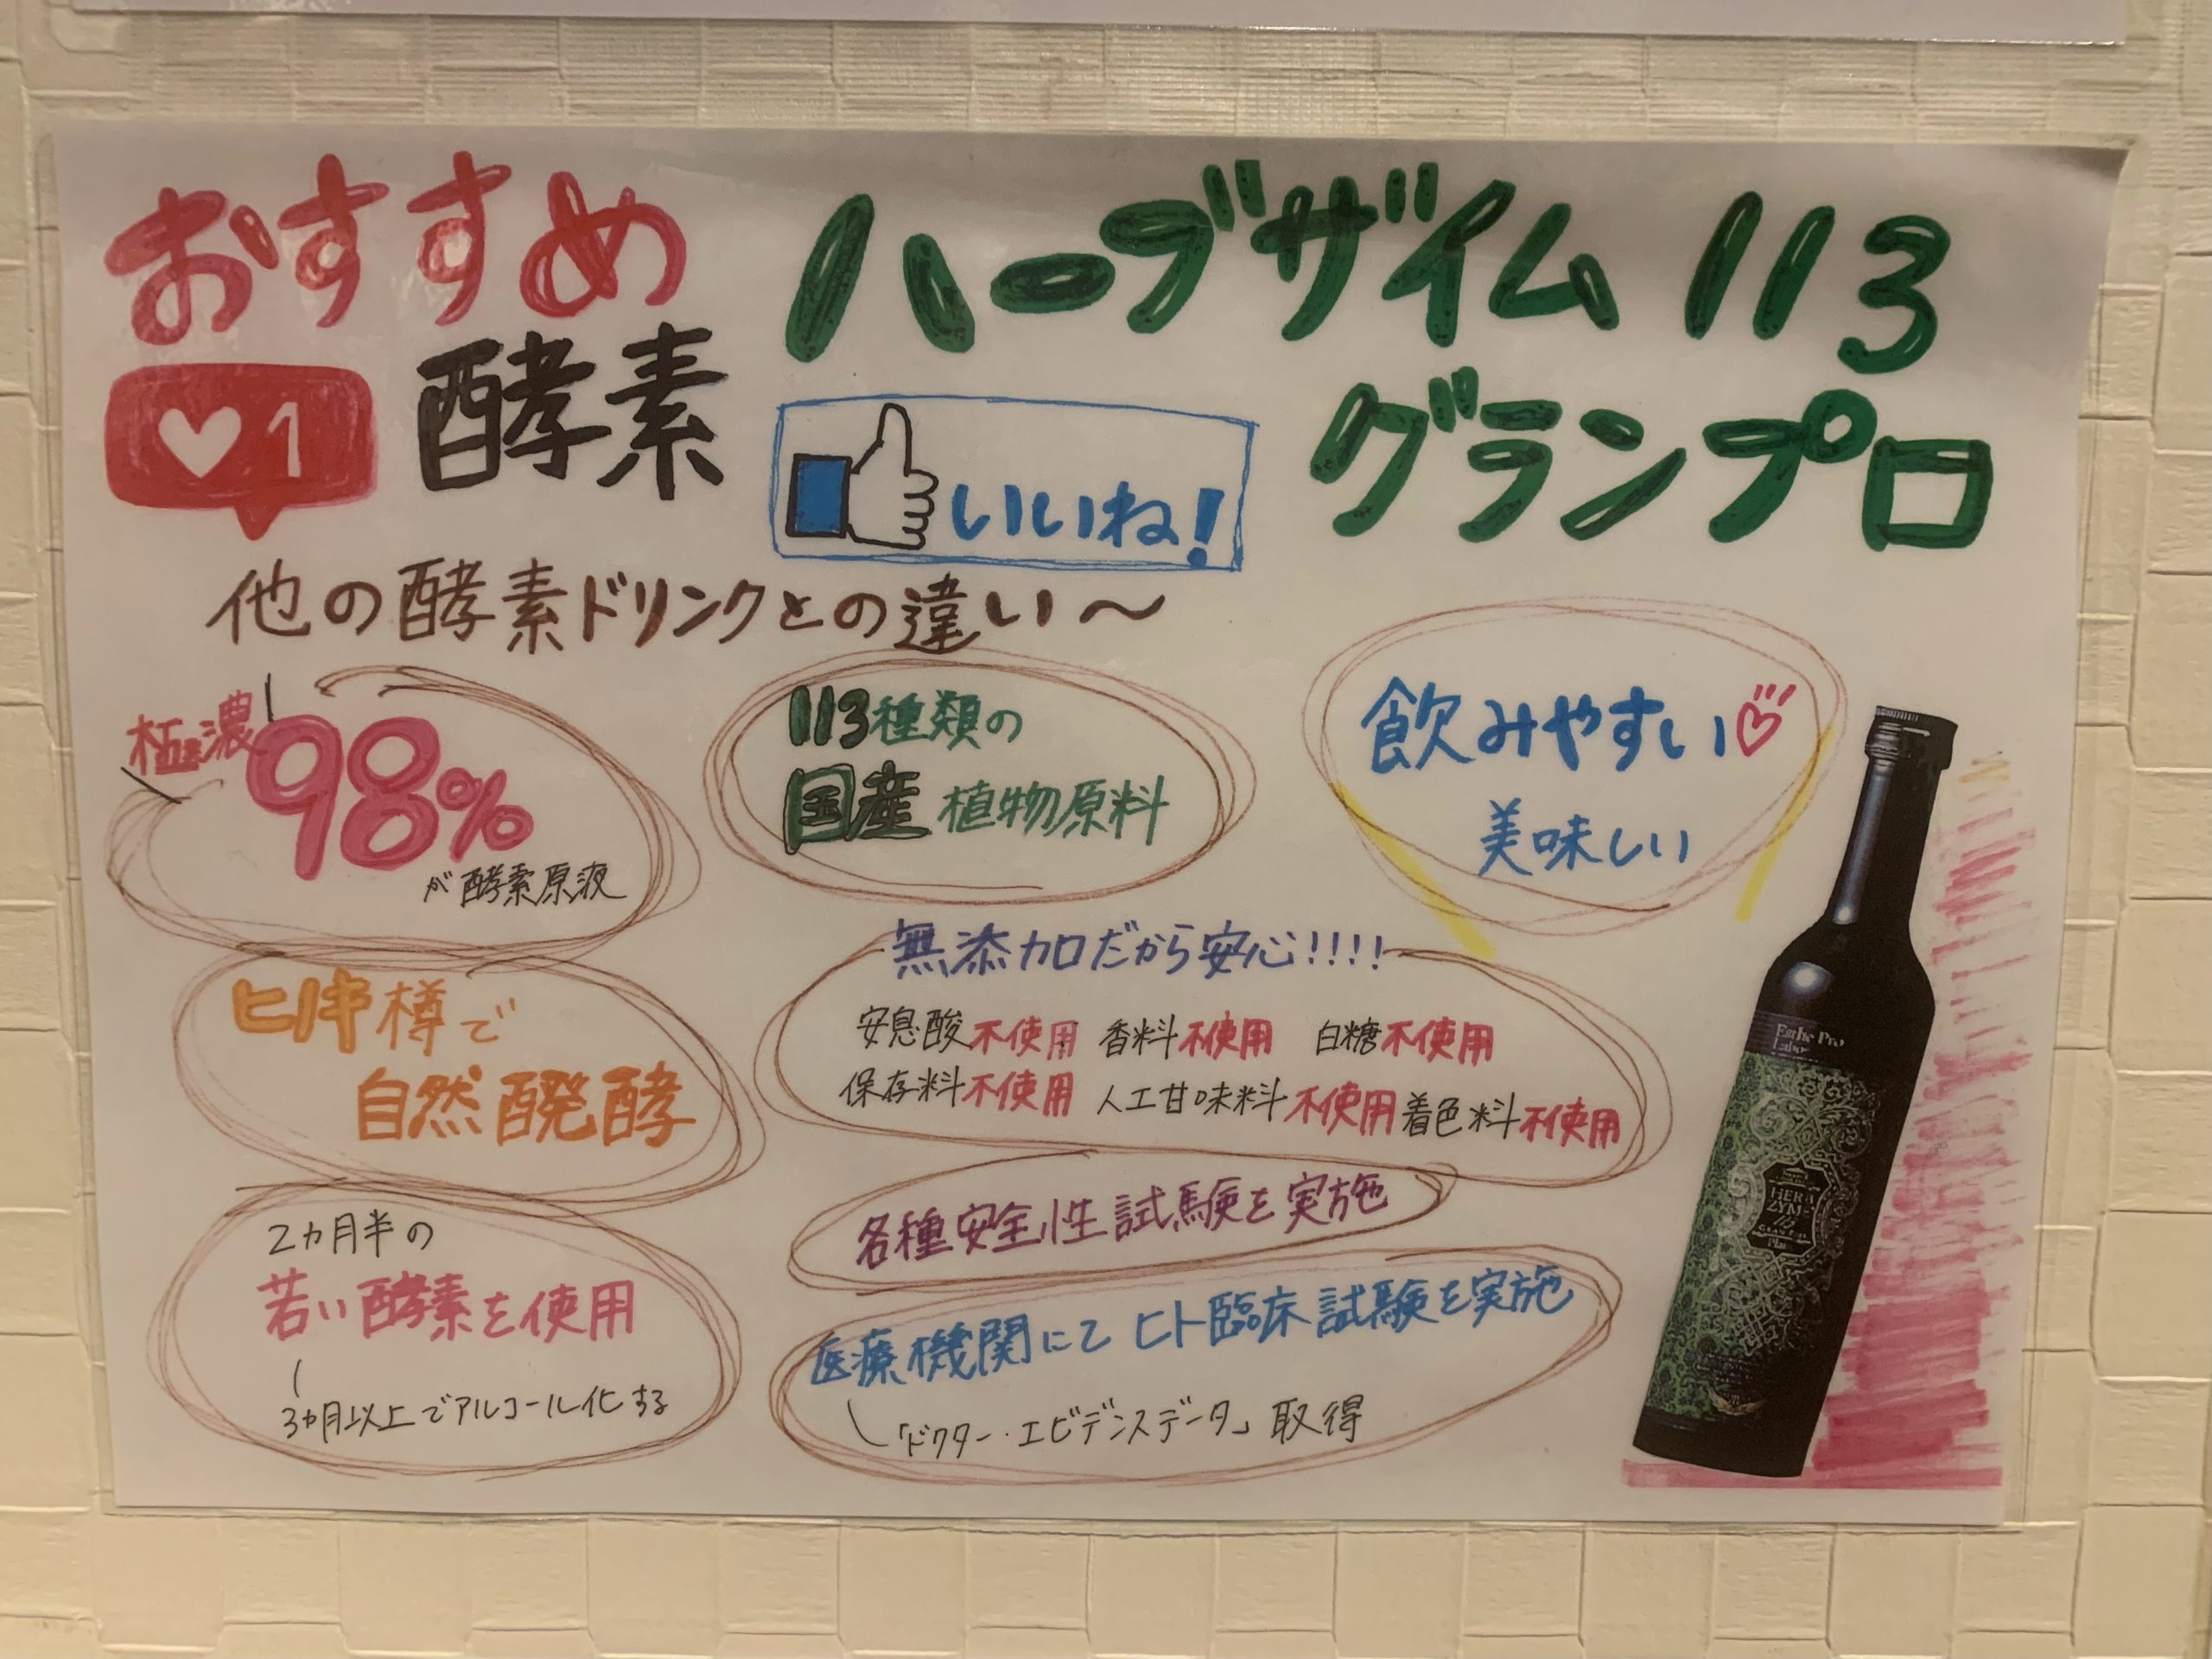 おすすめ
♡1 酵素
ハーブザイム 113
グランプロ
いいね!
他の酵素ドリンクとの違い〜
極濃
98%
が酵素原液
113種類の
国産 植物原料
飲みやすい♡
美味しい
ヒノキ樽で
自然醗酵
無添加だから安心!!!!
安息酸不使用 香料不使用 白糖不使用
保存料不使用 人工甘味料不使用 着色料不使用
2カ月半の
若い酵素を使用
3カ月以上でアルコール化する
各種安全性試験を実施
医療機関にて ヒト臨床試験を実施
「ドクター・エビデンスデータ」取得
Esthe Pro
Labo
HERB
ZYME
113